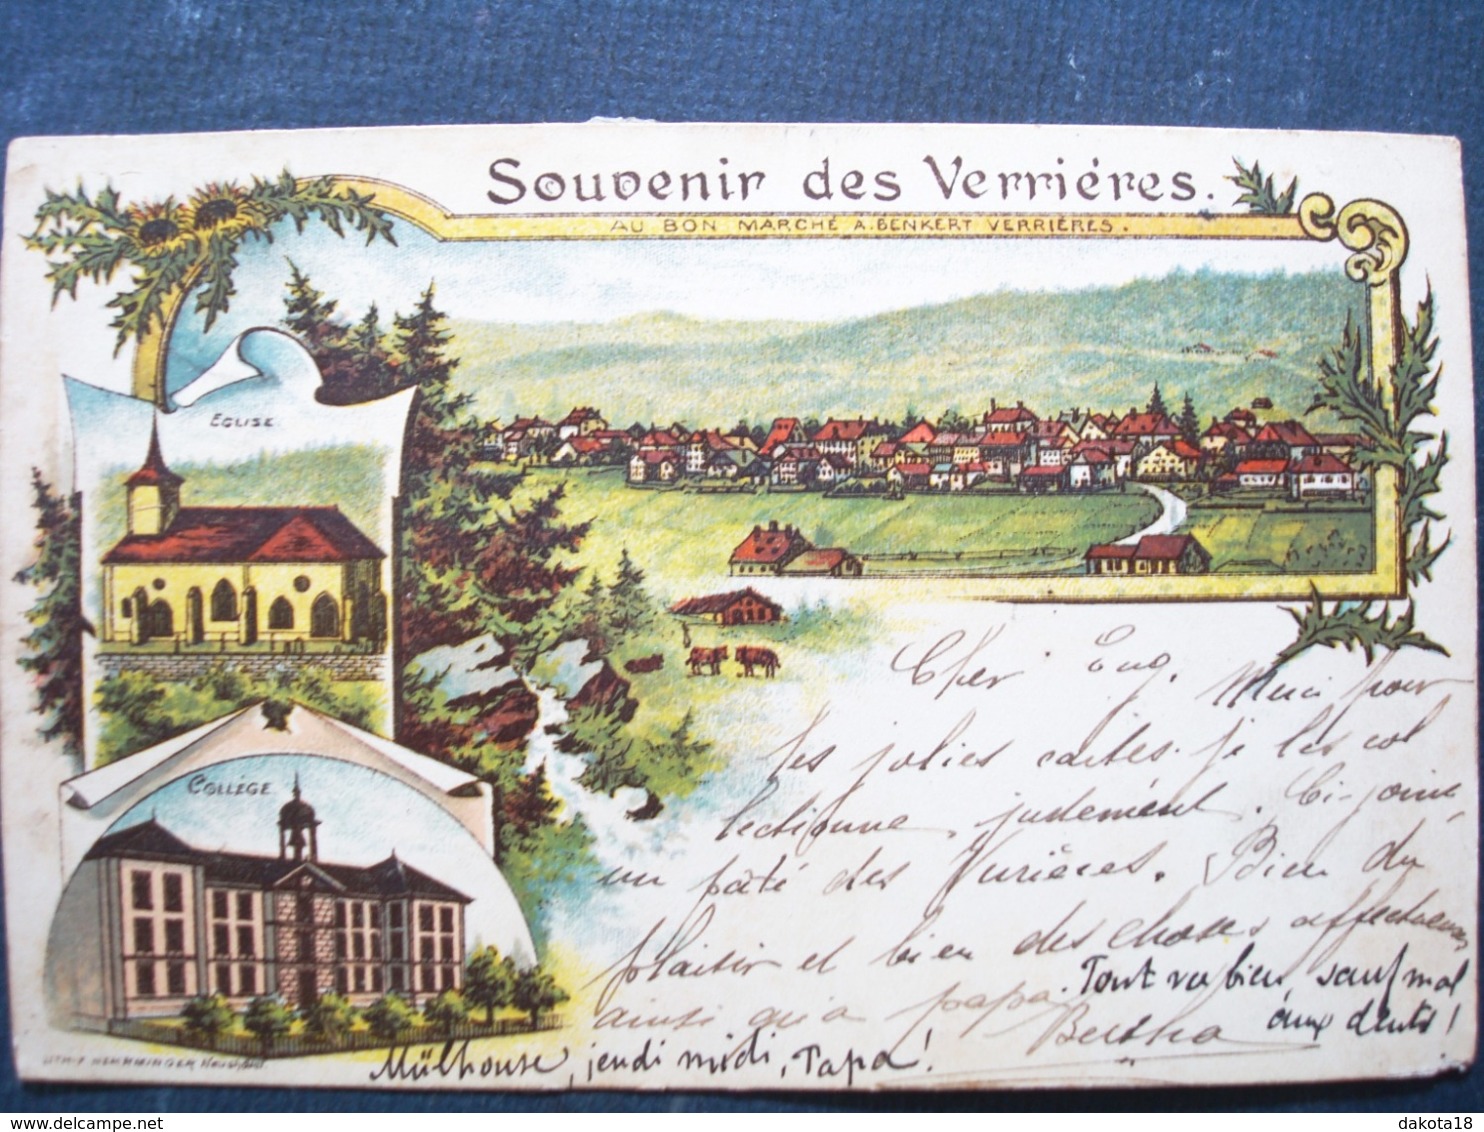 Souvenir des Verriéres.
AU BON MARCHÉ A. BENKERT VERRIÈRES.
EGLISE.
COLLÈGE
Cher Eug. Merci pour
les jolies cartes. je les col
lectionne justement. Ci-joint
un pâté des Verrières. Bien du
plaisir et bien des choses affectueuses
ainsi qu'a papa.
Bertha
Tout va bien, sauf mal
aux dents!
Mülhouse, jeudi midi, Papa!
dakota18